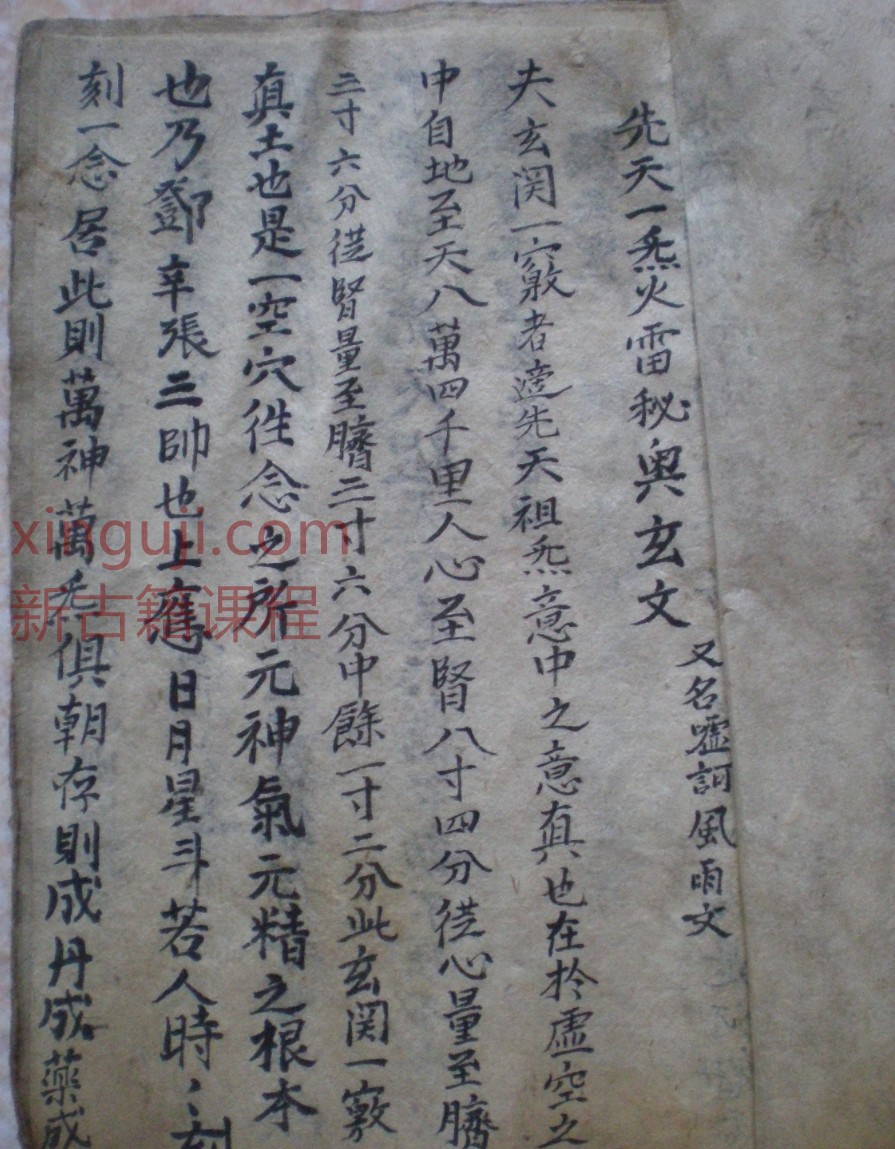 先天一炁火雷秘奥玄文
又名嘘訶風雨文
夫玄関一竅者逹先天祖炁意中之意真也在扵虚空之
中自地至天八萬四千里人心至腎八寸四分從心量至臍
三寸六分從腎量至臍三寸六分中餘一寸二分此玄関一竅
真土也是一空穴性念之所元神氣元精之根本
也乃鄧辛張三帥也上應日月星斗若人時〻刻
刻一念居此則萬神萬炁俱朝存則成丹成藥成
xinguji.com
新古籍课程